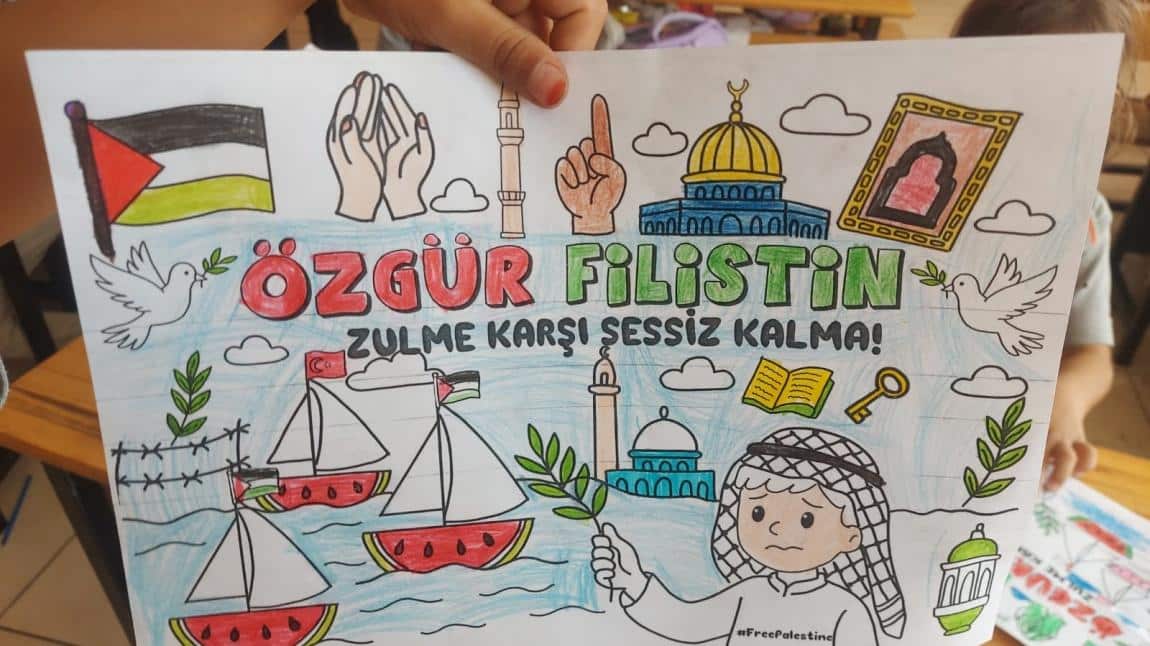 ÖZGÜR FİLİSTİN
ZULME KARŞI SESSİZ KALMA!
#FreePalestine